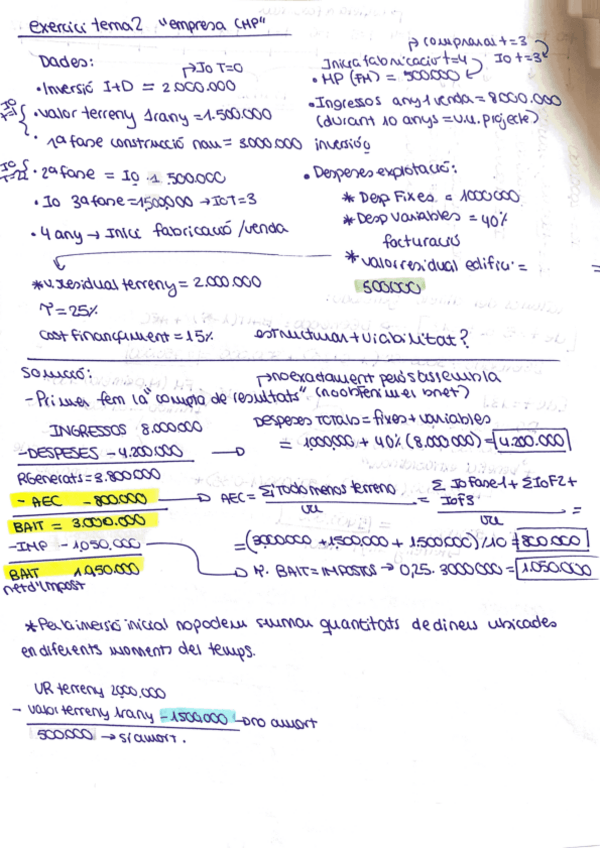 exercici tema 2 "empresa CHP"
→ comprar at=3
Dades: → Io T=0
Inicia fabricació t=4 Io t=3
• Inversió I+D = 2.000.000
• HP (FM) = 500.000
Io T=1 • valor terreny 1r any = 1.500.000
• 1ª fase construcció nau = 3.000.000 inversió
• Ingressos any 1 venda = 8.000.000
(durant 10 anys = v.u. projecte)
Io T=2 • 2ª fase = Io 1 500.000
• Io 3ª fase = 1500,000 → Io T=3
• 4 any → Inici fabricació /venda
• Despeses explotació:
* Desp Fixes = 1000000
* Desp variables = 40%
facturació
* valor residual edifici =
500.000
* v. residual terreny = 2.000.000
T = 25%
cost finançament = 15%
estructura + viabilitat?
Solució:
→ no exactament però s'assembla
- Primer fem la "compta de resultats" (no obtenim el bnet)
INGRESSOS 8.000.000
- DESPESES - 4.200.000 →
RGenerats = 3.800.000
- AEC - 800.000 →
BAIT = 3.000.000
- IMP - 1,050.000
BAIT 1.950.000
net d'impost
DESPESES TOTALS = fixes + variables
= 1,000,000 + 40% (8.000.000) = 4.200.000
AEC = Σ Todo menos terreno / vu = Σ Io Fase 1 + Σ Io F2 + Io F3 / vu =
= (3,000000 + 1,500,000 + 1500.000) / 10 = 800.000
→ T. BAIT = IMPOSTOS → 0,25. 3000000 = 1.050.000
* Per la inversió inicial no podem sumar quantitats de diners ubicades
en diferents moments del temps.
VR terreny 2000,000
- valor terreny 1r any - 1500.000 → no amort
500.000 → si amort.